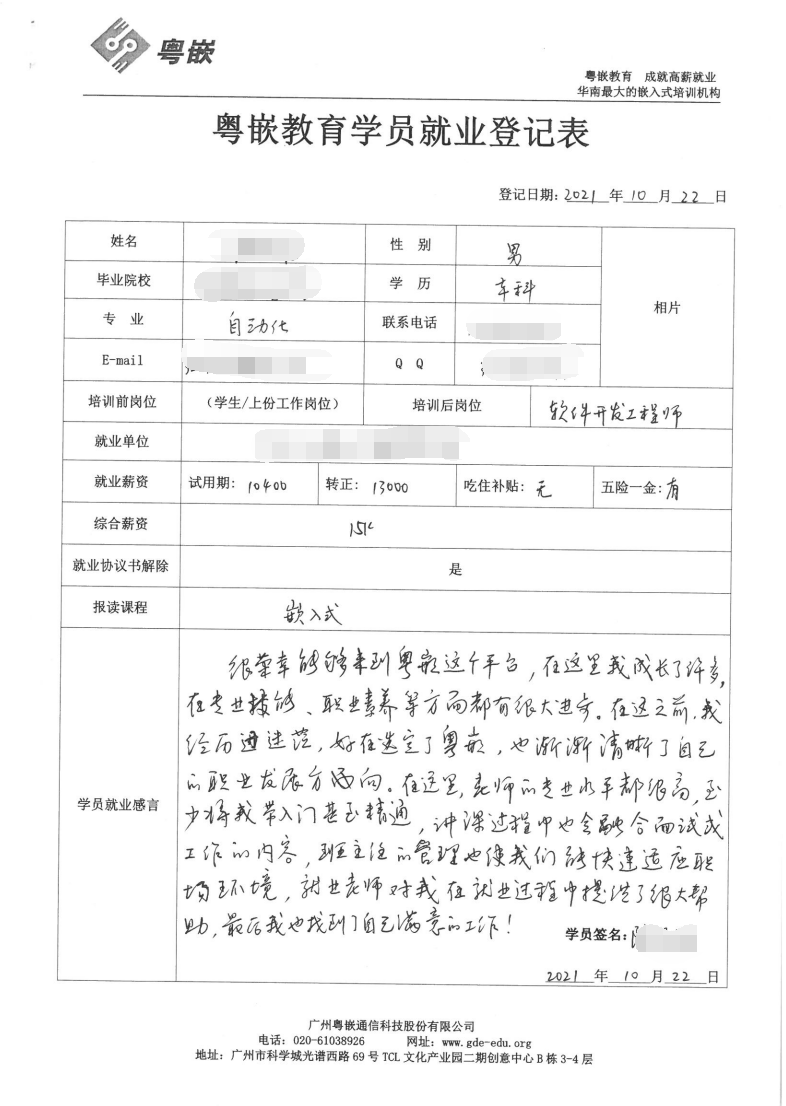 粤嵌
粤嵌教育 成就高薪就业
华南最大的嵌入式培训机构
粤嵌教育学员就业登记表
登记日期:2021 年 10 月 22 日
姓名 性 别 男
毕业院校 学 历 本科
相片
专 业 自动化 联系电话
E-mail Q Q
培训前岗位 (学生/上份工作岗位) 培训后岗位 软件开发工程师
就业单位
就业薪资 试用期: 10400 转正: 13000 吃住补贴: 无 五险一金: 有
综合薪资 15k
就业协议书解除 是
报读课程 嵌入式
很荣幸能够来到粤嵌这个平台,在这里我成长了许多,
在专业技能、职业素养等方面都有很大进步。在这之前,我
经历过迷茫,好在选定了粤嵌,也渐渐清晰了自己
的职业发展方向。在这里,老师的专业水平都很高,至
学员就业感言
少将我带入门甚至精通,讲课过程中也会融合面试或
工作的内容,班主任的管理也使我们能快速适应职
场环境,就业老师对我在就业过程中提供了很大帮
助,最后我也找到了自己满意的工作!
学员签名: 陈
2021 年 10 月 22 日
广州粤嵌通信科技股份有限公司
电话: 020-61038926 网址: www.gde-edu.org
地址: 广州市科学城光谱西路 69 号 TCL 文化产业园二期创意中心 B 栋 3-4 层